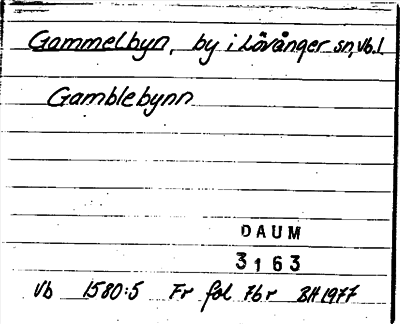 Gammelbyn, by i Lövånger sn, Vb.l.
Gamblebynn
DAUM
3163
Vb 1580:5 Fr fol 7br BH 1977